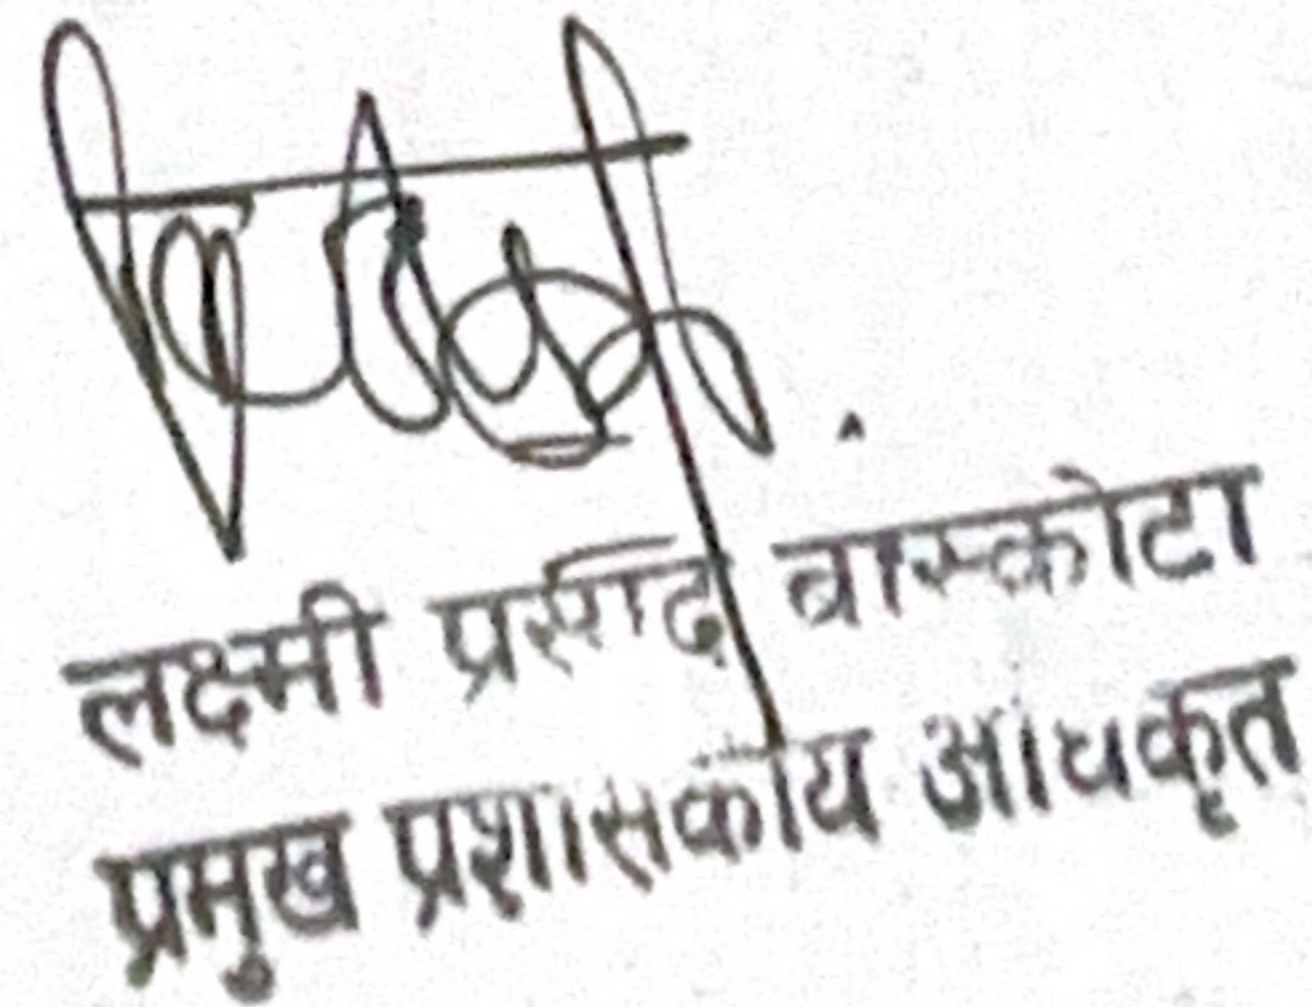 लक्ष्मी प्रसाद बास्कोटा
प्रमुख प्रशासकीय अधिकृत